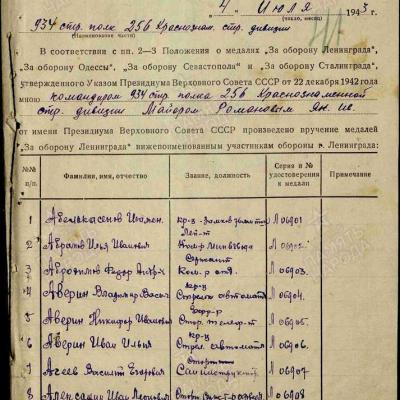 4 Июля 1943 г.
(число, месяц)
934 стр. полк 256 Краснознам. стр. дивизии
(Наименование части)
В соответствии с пп. 2—3 Положения о медалях „За оборону Ленинграда",
„За оборону Одессы", „За оборону Севастополя" и „За оборону Сталинграда",
утвержденного Указом Президиума Верховного Совета СССР от 22 декабря 1942 года
мною командиром 934 стр. полка 256 Краснознаменной
стр. дивизии Майором Романовым
от имени Президиума Верховного Совета СССР произведено вручение медалей
„За оборону Ленинграда" нижепоименованным участникам обороны г. Ленинграда:
№№ п/п. Фамилия, имя, отчество Звание, должность Серия и № удостоверения к медали Примечание
1 кр-ц Л 06901
Лей-т
2 Абрамов Илья Иванович Ком-р Л 06902
Сержант
3 Федор Ком-р отд. Л 06903.
кр-ц
4 Аверин Владимир Стрелок автомат Л 06904.
5 Аверин Никифор Иванович Стар. телеф-т Л 06905.
кр-ц
6 Аверин Иван Ильич Стрел. автомат Л 06906
7 Агеев Василий Егорович Санинструктор Л 06907.
8 Иван Л 06908